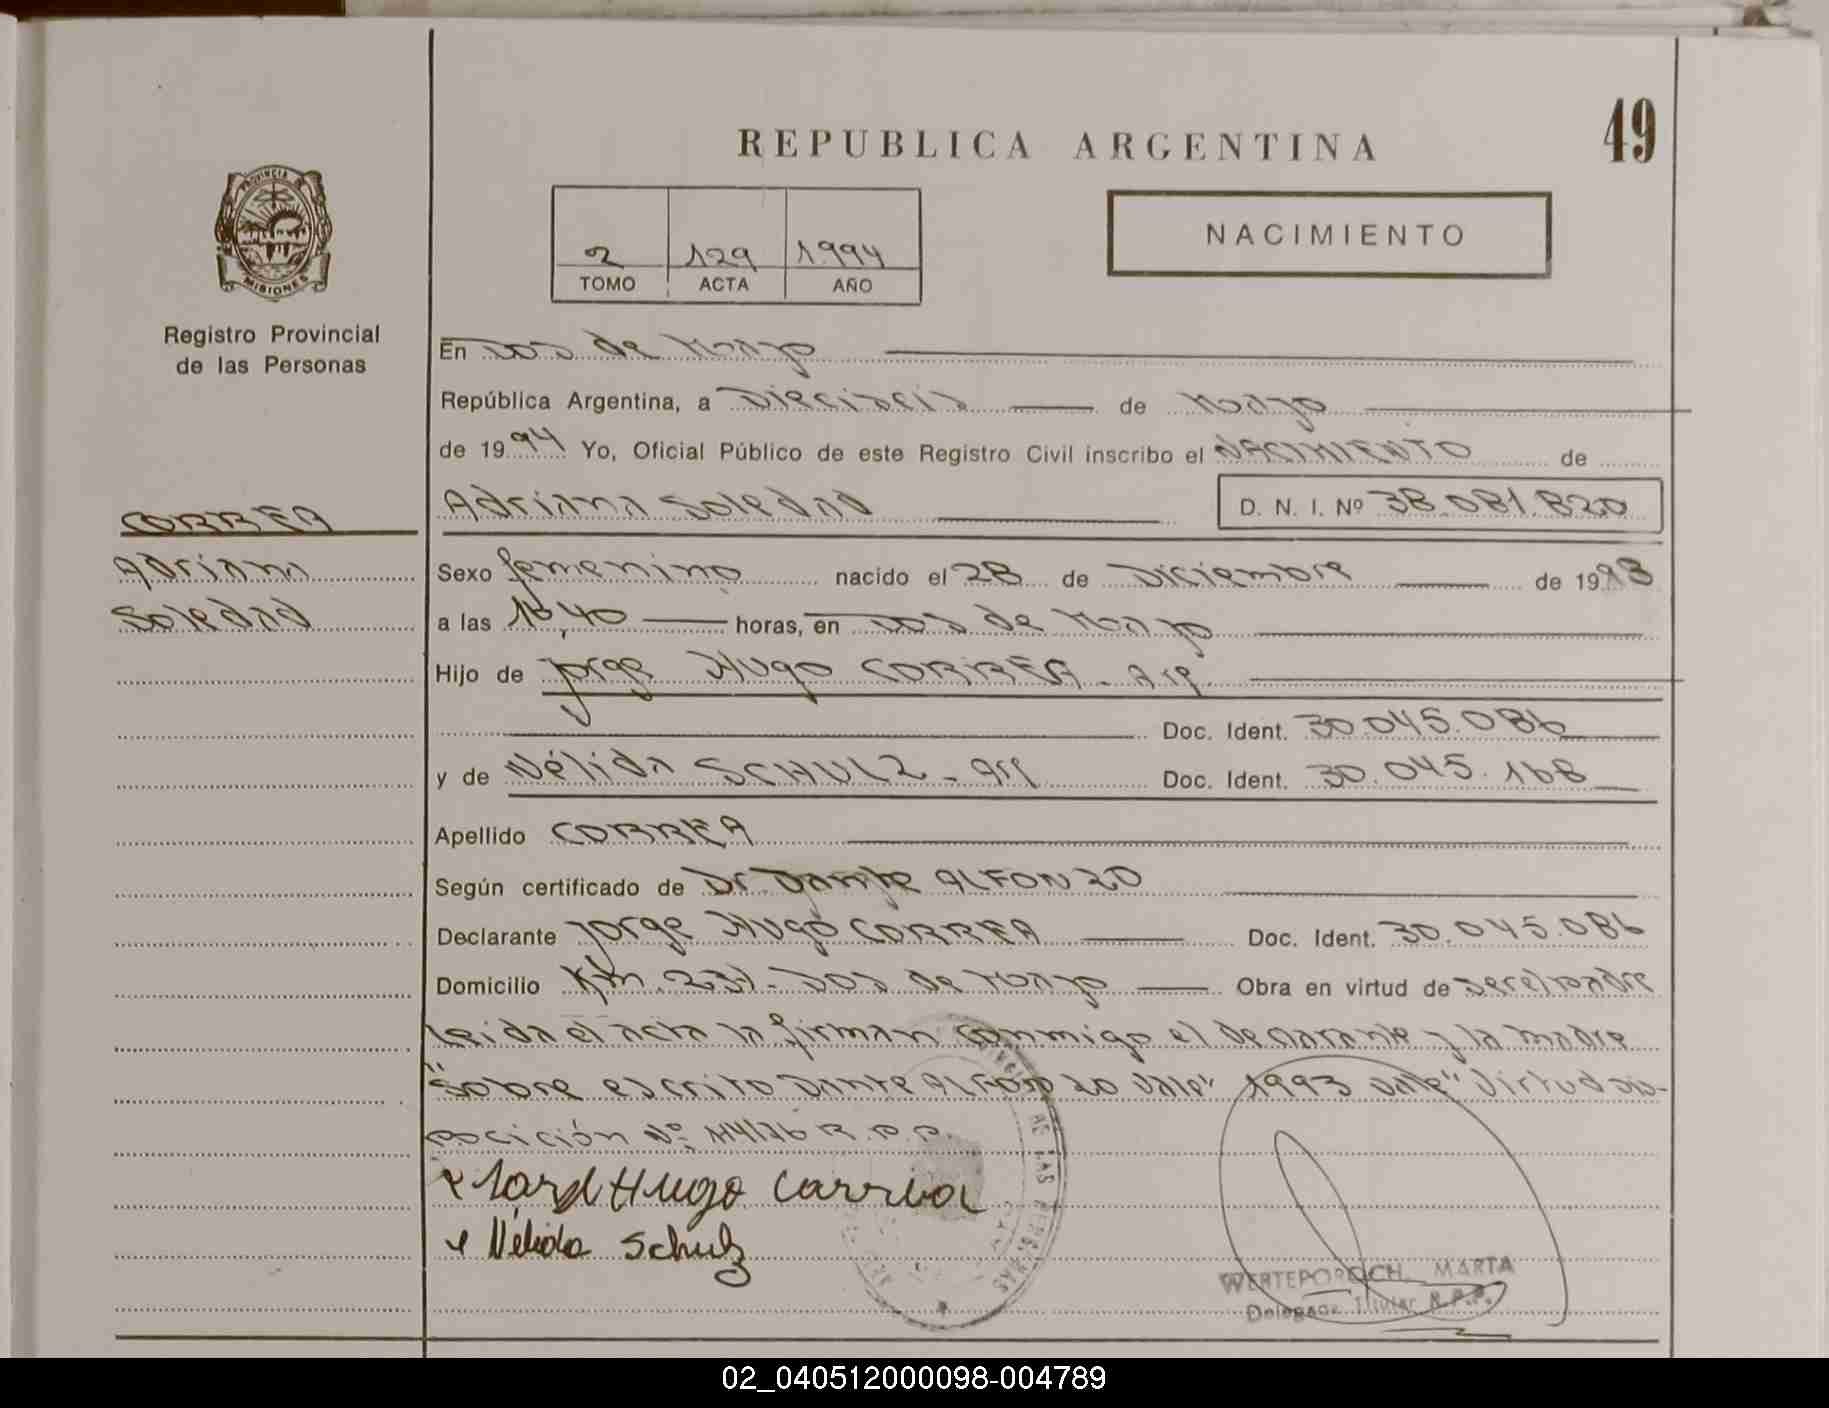 49
REPUBLICA ARGENTINA
PROVINCIA DE
MISIONES
Registro Provincial
de las Personas
2 129 1.994
TOMO ACTA AÑO
NACIMIENTO
En Dos de Mayo
República Argentina, a Dieciseis de Mayo
de 1994 Yo, Oficial Público de este Registro Civil inscribo el NACIMIENTO de
CORREA
Adriana Soledad D. N. I. Nº 38.081.820
Adriana
Sexo femenino nacido el 28 de Diciembre de 1993
Soledad
a las horas, en Dos de Mayo
Hijo de Jorge Hugo CORREA - Arg
Doc. Ident. 30.045.086
y de Nélida SCHULZ - Arg Doc. Ident. 30.045.168
Apellido CORREA
Según certificado de Dr. Dante ALFONZO
Declarante Jorge Hugo CORREA Doc. Ident. 30.045.086
Domicilio Km. 231 - Dos de Mayo Obra en virtud de ser el padre
Leida el acta la firman conmigo el declarante y la madre
"Sobre escrito Dante ALFONZO Vale" 1993 Vale" Virtud dis-
posición Nº R.P.P.
Hugo Correa
Nélida Schulz
DE LAS PERSONAS
WERTEPOROCH, MARTA
Delegada Titular R.P.P.
02_040512000098-004789